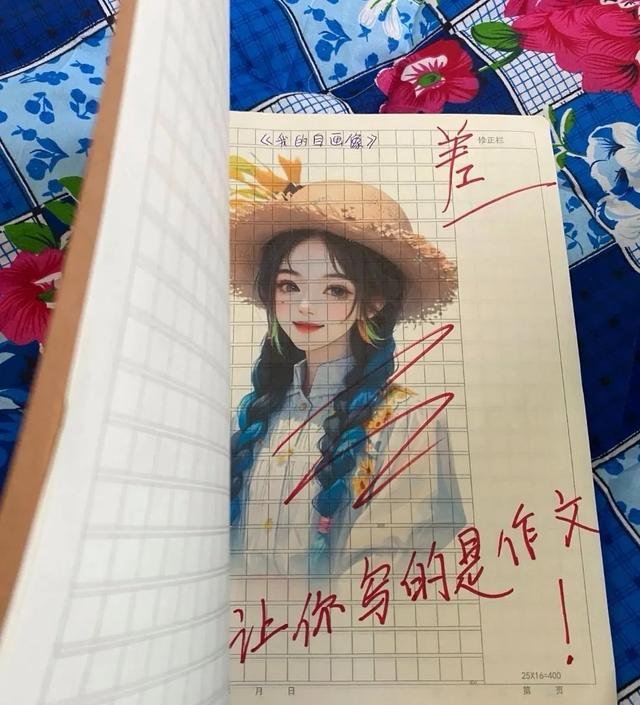 《我的自画像》
差
修正栏
让你写的是作文!
25X16=400
月 日
第 页